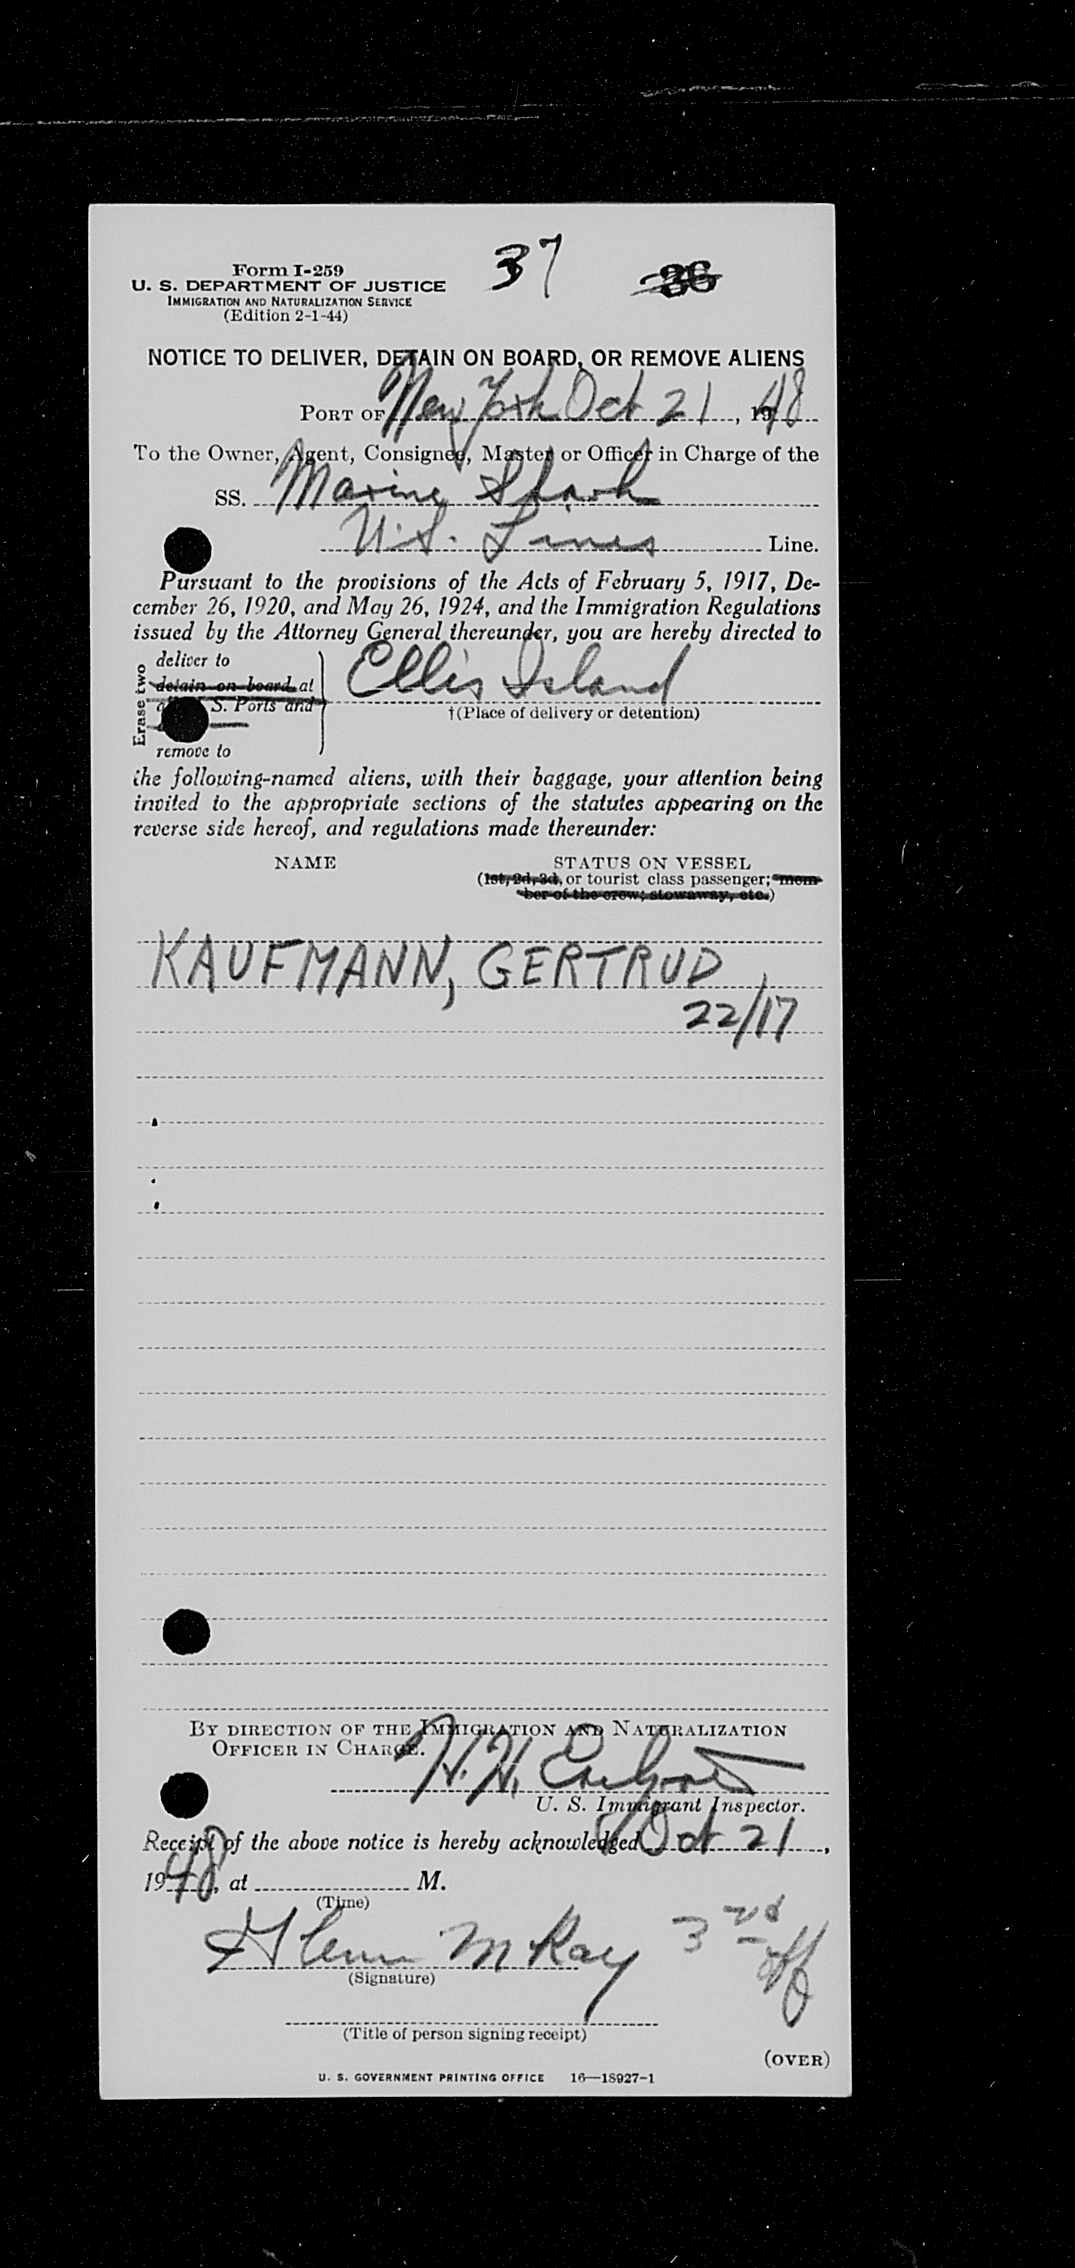 37
36
Form I-259
U. S. DEPARTMENT OF JUSTICE
IMMIGRATION AND NATURALIZATION SERVICE
(Edition 2-1-44)
NOTICE TO DELIVER, DETAIN ON BOARD, OR REMOVE ALIENS
PORT OF New York Oct 21, 1948
To the Owner, Agent, Consignee, Master or Officer in Charge of the
SS. Marine Shark
U.S. Lines Line.
Pursuant to the provisions of the Acts of February 5, 1917, De-
cember 26, 1920, and May 26, 1924, and the Immigration Regulations
issued by the Attorney General thereunder, you are hereby directed to
Erase two
deliver to
detain on board at
S. Ports and
remove to
Ellis Island
†(Place of delivery or detention)
the following-named aliens, with their baggage, your attention being
invited to the appropriate sections of the statutes appearing on the
reverse side hereof, and regulations made thereunder:
NAME STATUS ON VESSEL
(1st, 2d, 3d, or tourist class passenger; mem-
ber of the crew; stowaway, etc.)
KAUFMANN, GERTRUD
22/17
BY DIRECTION OF THE IMMIGRATION AND NATURALIZATION
OFFICER IN CHARGE.
H. H.
U. S. Immigrant Inspector.
Receipt of the above notice is hereby acknowledged Oct 21,
1948, at M.
(Time)
Glenn McKay 3rd off
(Signature)
(Title of person signing receipt)
(OVER)
U. S. GOVERNMENT PRINTING OFFICE 16—18927-1